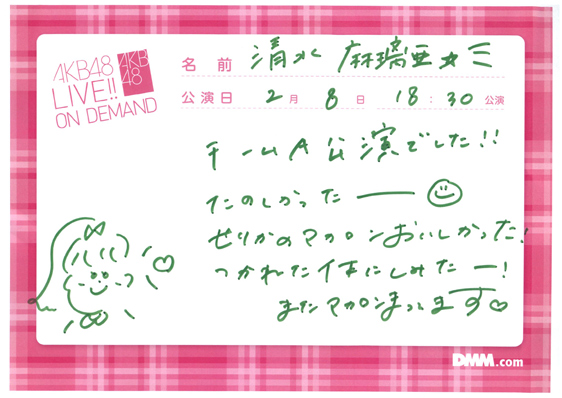 AKB48
LIVE!!
ON DEMAND
AKB
48
名前 清水 麻璃亜☆ミ
公演日 2月 8日 18:30 公演
チームA公演でした!!
たのしかったー
せりかのマカロンおいしかった!
つかれた体にしみたー!
またマカロンまってます♡
DMM.com